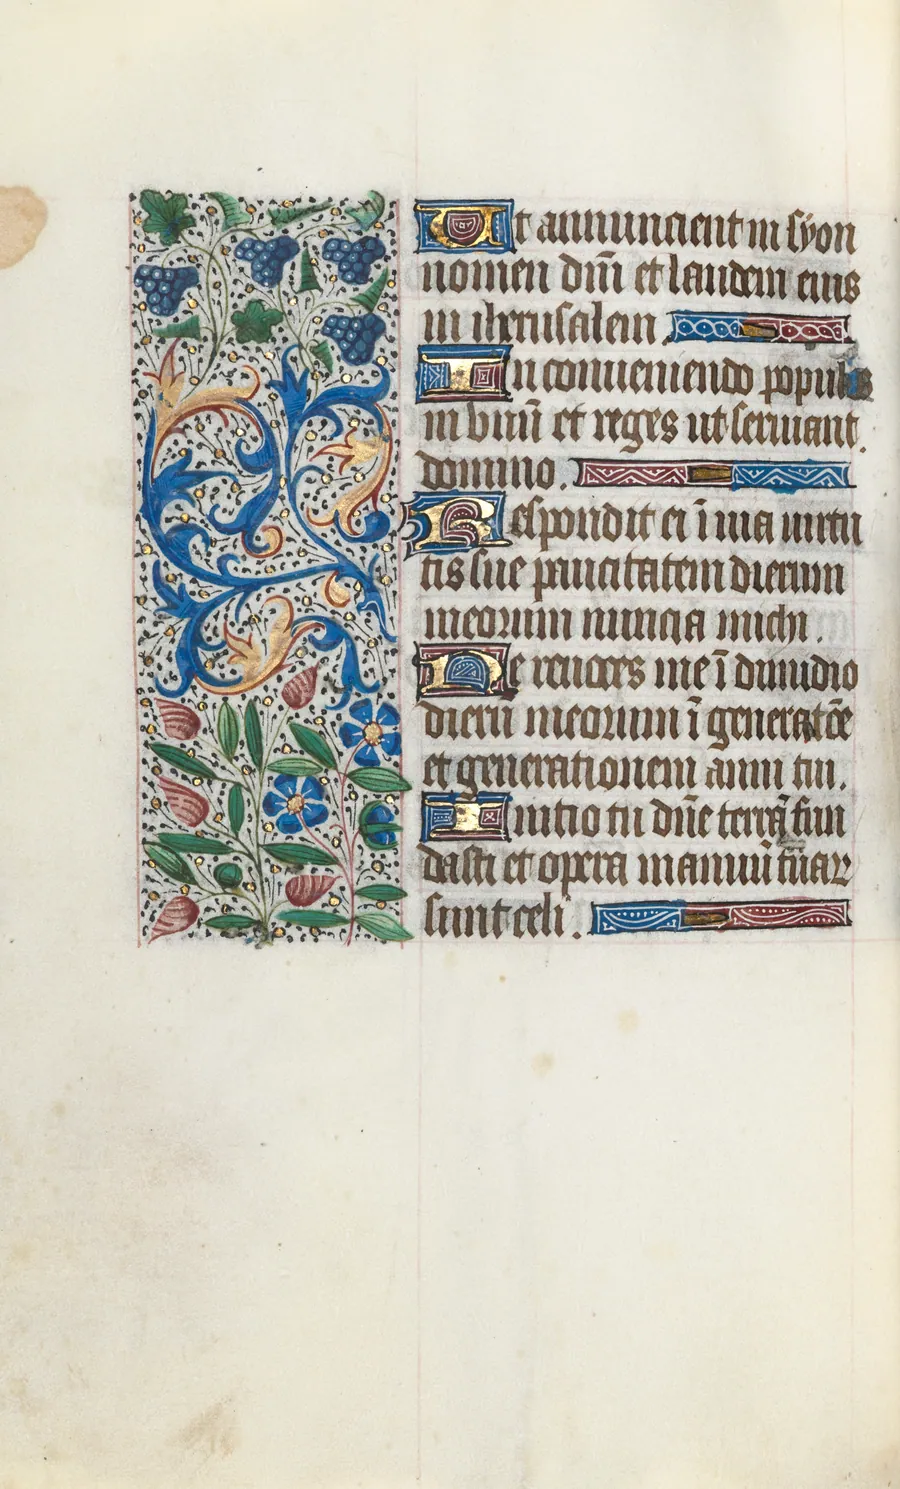 Ut annuncient in syon
nomen dnī et laudem eius
in iherusalem
In conueniendo populos
in vnū et reges ut seruiant
domino.
Respondit ei ī uia uirtu
tis sue paucitatem dierum
meorum nuncia michi.
Ne reuoces me ī dimidio
dierū meorum ī generatōe
et generationem anni tui.
Initio tu dn̄e terrā fun
dasti et opera manuū tuaꝝ
sunt celi.